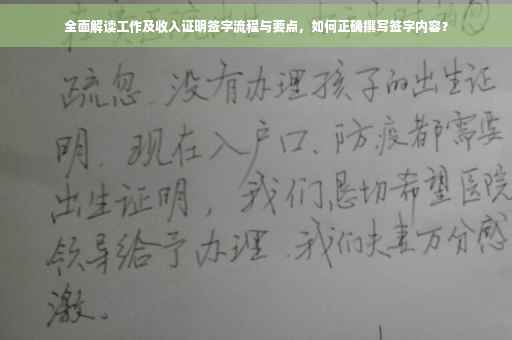 全面解读工作及收入证明签字流程与要点，如何正确撰写签字内容？
疏忽、没有办理孩子的出生证
明、现在入户口、防疫都需要
出生证明，我们恳切希望医院
领导给予办理、我们夫妻万分感
激。